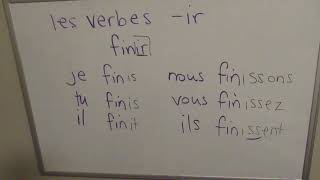 les verbes -ir
finir
je finis nous finissons
tu finis vous finissez
il finit ils finissent